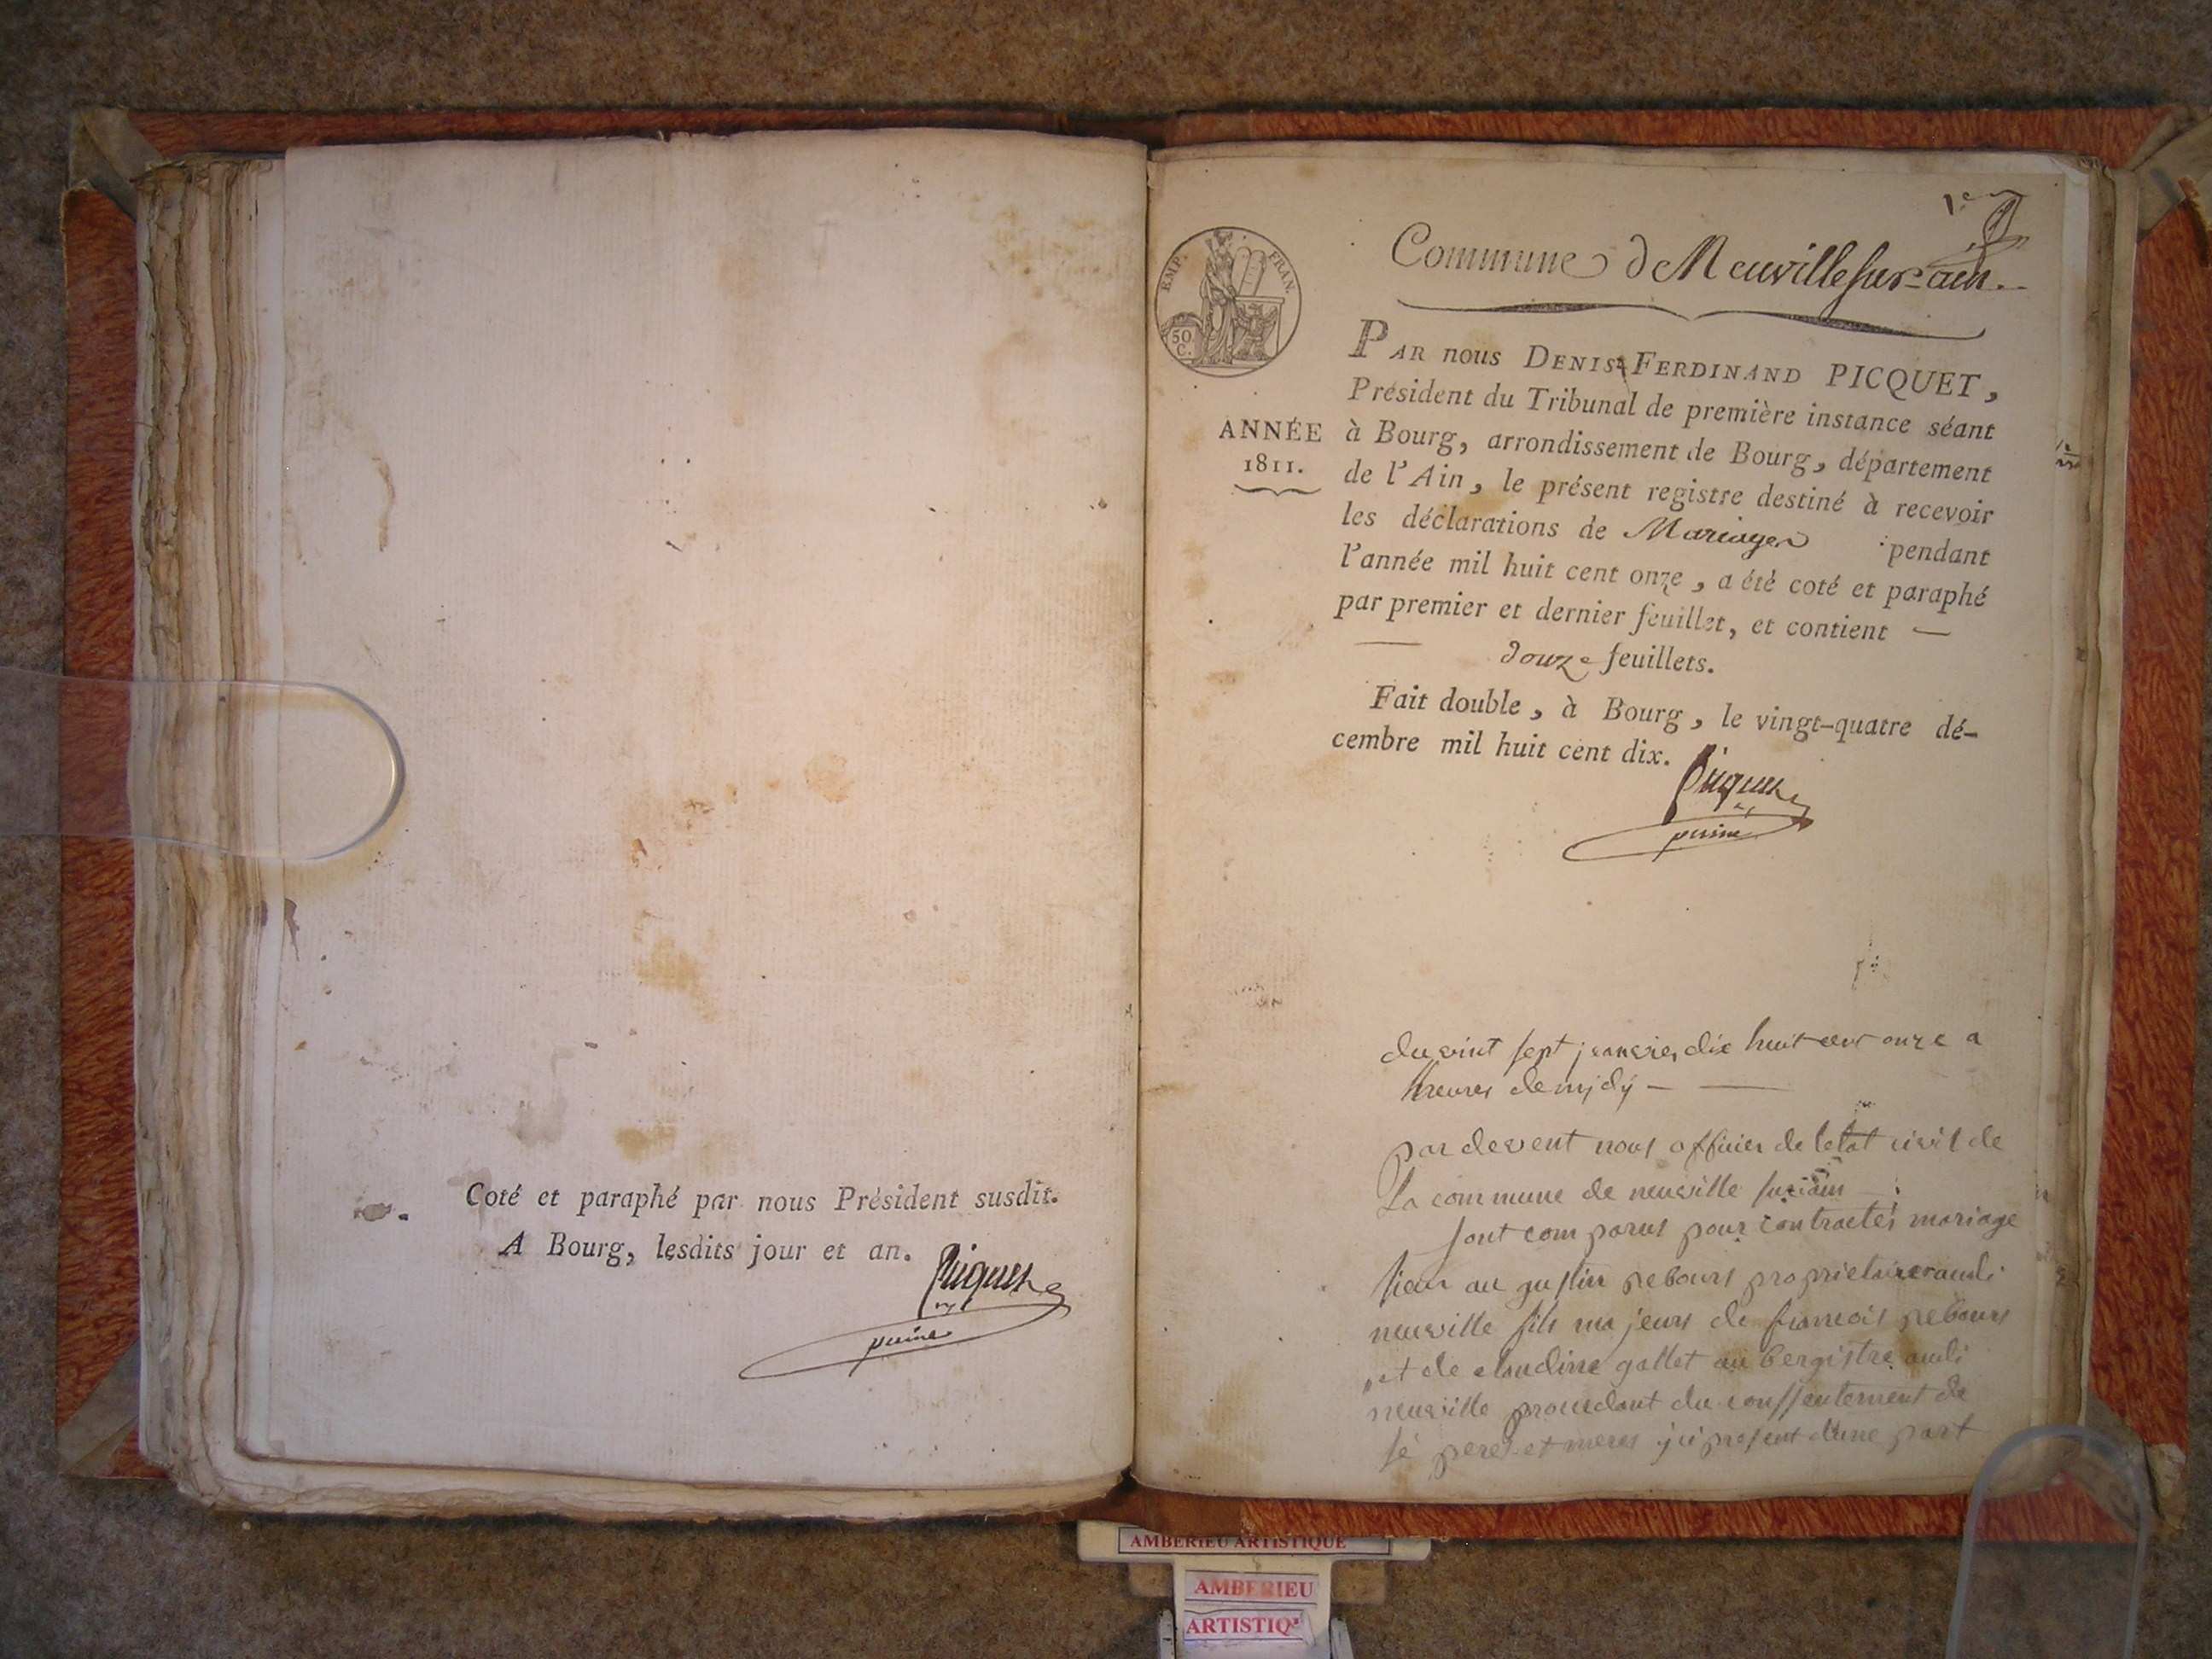 Coté et paraphé par nous Président susdit.
A Bourg, lesdits jour et an.
Picquet
1er
Commune de Neuville sur-ain.
EMP. FRAN.
50 C.
PAR nous DENIS-FERDINAND PICQUET,
Président du Tribunal de première instance séant
ANNÉE
1811.
à Bourg, arrondissement de Bourg, département
de l'Ain, le présent registre destiné à recevoir
les déclarations de Mariages pendant
l'année mil huit cent onze, a été coté et paraphé
par premier et dernier feuillet, et contient —
— douze feuillets.
Fait double, à Bourg, le vingt-quatre dé-
cembre mil huit cent dix.
Picquet
du vint sept janvier dix huit cent onze a
heures de mydy —
par devent nous officier de letat civil de
La commune de neuville sur ain
sont comparus pour contractés mariage
sieur augustin pebours proprietaire audi
neuville fils majeurs de francois pebours
et de claudine gallet aubergistre audi
neuville procedant du conssentement de
sé peres et meres ici present d'une part
AMBERIEU ARTISTIQUE
AMBERIEU
ARTISTIQ